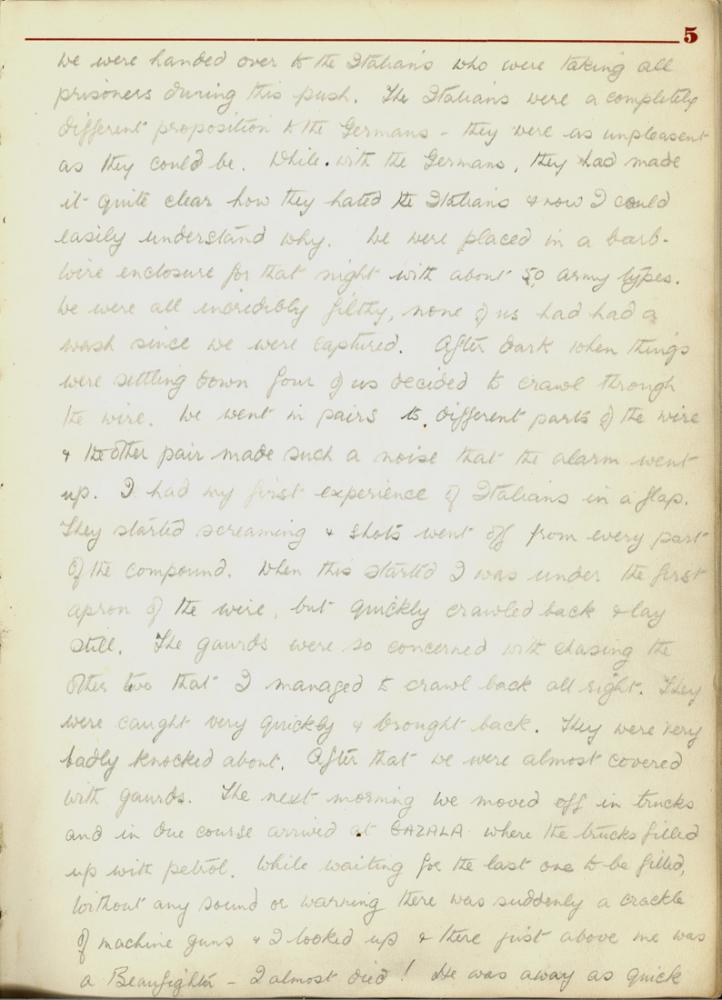 5
We were handed over to the Italians who were taking all
prisoners during this push. The Italians were a completely
different proposition to the Germans - they were as unpleasent
as they could be. While. with the Germans, they had made
it quite clear how they hated the Italians & now I could
easily understand why. We were placed in a barb-
wire enclosure for that night with about 50 army types.
We were all incredibly filthy, none of us had had a
wash since we were captured. After dark when things
were settling down four of us decided to crawl through
the wire. We went in pairs to different parts of the wire
& the other pair made such a noise that the alarm went
up. I had my first experience of Italians in a flap.
They started screaming & shots went off from every part
of the compound. When this started I was under the first
apron of the wire, but quickly crawled back & lay
still. The gaurds were so concerned with chasing the
other two that I managed to crawl back all right. They
were caught very quickly & brought back. They were very
badly knocked about. After that we were almost covered
with gaurds. The next morning we moved off in trucks
and in due course arrived at GAZALA where the trucks filled
up with petrol. While waiting for the last one to be filled,
without any sound or warning there was suddenly a crackle
of machine guns & I looked up & there just above me was
a Beaufighter - I almost died! He was away as quick